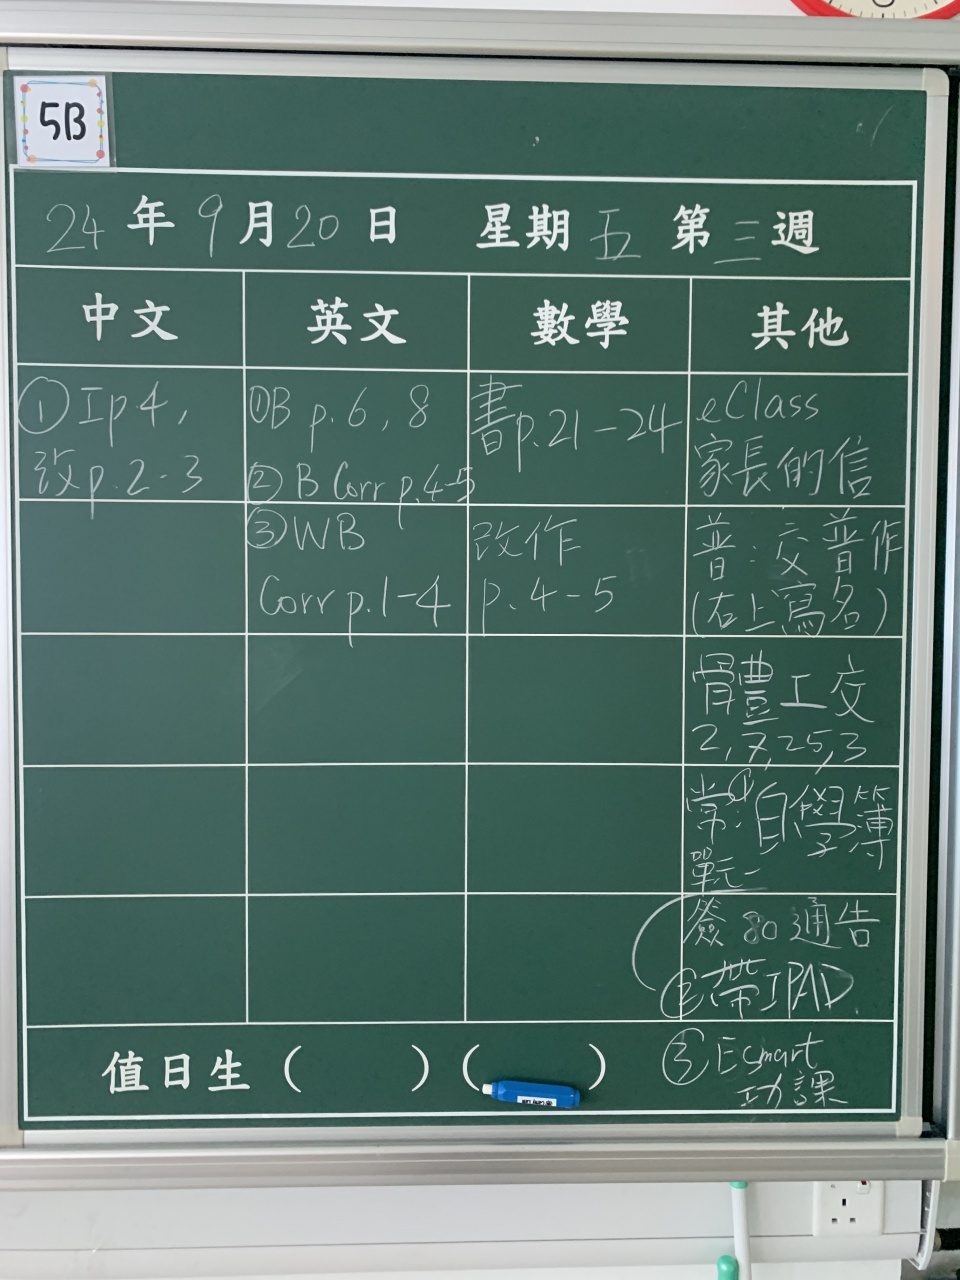 5B
24年9月20日 星期五 第三週
中文 英文 數學 其他
①Ip4,
改p.2-3
①B p.6,8
②B Corr p.4-5
③WB
Corr p.1-4
書p.21-24
改作
p.4-5
eClass
家長的信
普:交普作
(右上寫名)
體工交
2,7,25,3
常:①自學簿
單元一
簽80通告
②帶IPAD
③Esmart
功課
值日生( )( )